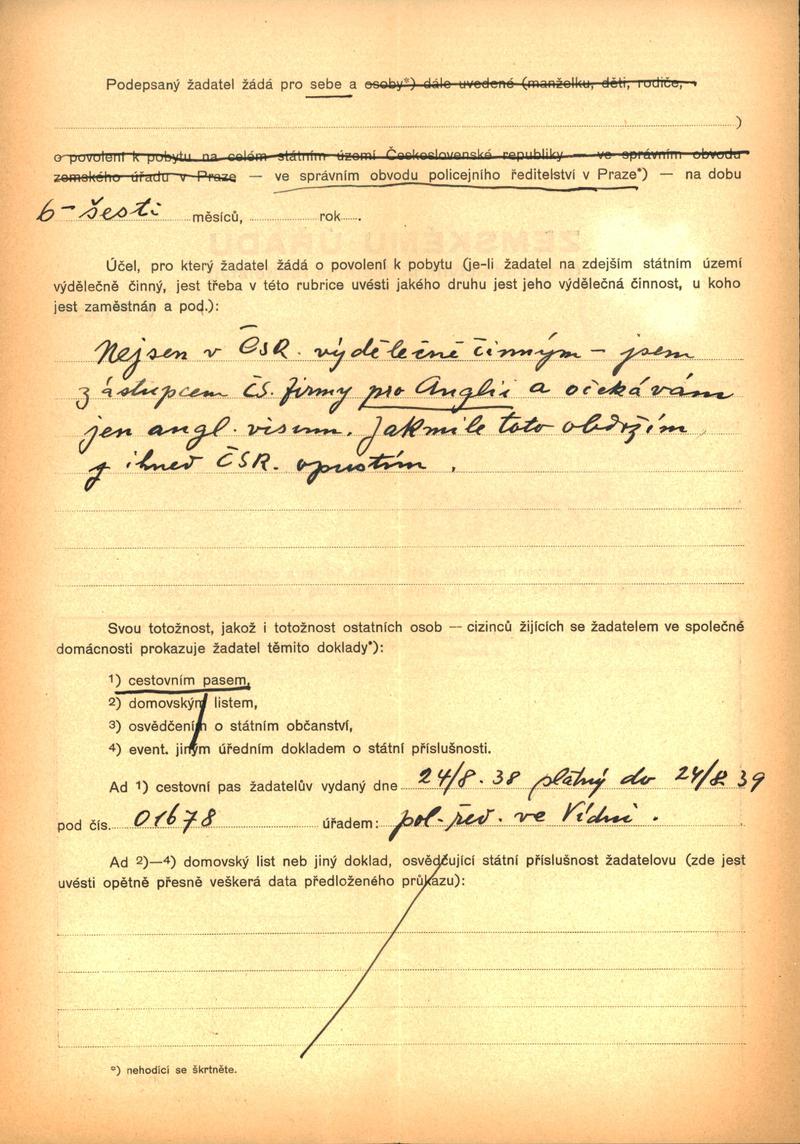 Podepsaný žadatel žádá pro sebe a osoby*) dále uvedené (manželku, děti, rodiče,
)
o povolení k pobytu na celém státním území Československé republiky — ve správním obvodu
zemského úřadu v Praze — ve správním obvodu policejního ředitelství v Praze*) — na dobu
6 - šesti měsíců, rok.
Účel, pro který žadatel žádá o povolení k pobytu (je-li žadatel na zdejším státním území
výdělečně činný, jest třeba v této rubrice uvésti jakého druhu jest jeho výdělečná činnost, u koho
jest zaměstnán a pod.):
Nejsen v ČSR. výdělečně činným - jsem
zástupcem čs. firmy pro Anglii a očekávám
jen angl. visum. Jakmile toto obdržím,
ihned ČSR. opustím.
Svou totožnost, jakož i totožnost ostatních osob — cizinců žijících se žadatelem ve společné
domácnosti prokazuje žadatel těmito doklady*):
1) cestovním pasem,
2) domovským listem,
3) osvědčením o státním občanství,
4) event. jiným úředním dokladem o státní příslušnosti.
Ad 1) cestovní pas žadatelův vydaný dne 24/8. 38 platný do 24/8 39
pod čís. 01678 úřadem: pol. řed. ve Vídni.
Ad 2)—4) domovský list neb jiný doklad, osvědčující státní příslušnost žadatelovu (zde jest
uvésti opětně přesně veškerá data předloženého průkazu):
*) nehodící se škrtněte.